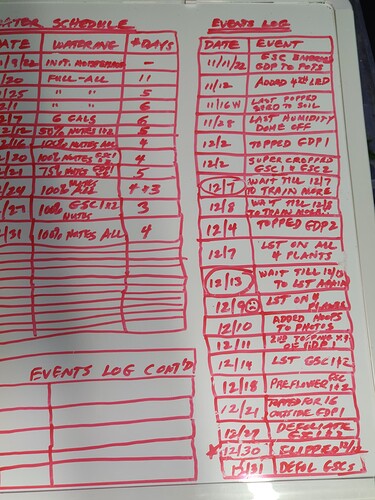 WATER SCHEDULE
DATE WATERING # DAYS
/9/22 INIT. —
/20 FULL-ALL 11
/25 " " 5
/1 " " 6
/7 6 GALS 6
12/12 50% NUTES 5
12/16 100% NUTES ALL 4
/20 100% NUTES GSC1 4
/21 75% NUTES 5
/24 100% 4+3
/27 100% GSC1+2 3
NUTES
/31 100% NUTES ALL 4
EVENTS LOG CONT'D
EVENTS LOG
DATE EVENT
11/11/22 GSC
GDP TO POTS
11/12 ADDED 4TH LED
11/16 LAST POPPED
SEED TO SOIL
11/28 LAST HUMIDITY
DOME OFF
12/2 TOPPED GDP1
12/2 SUPER CROPPED
GSC1 & GSC2
12/7 WAIT TILL 12/7
TO TRAIN MORE
12/8 WAIT TILL 12/8
TO TRAIN MORE
12/4 TOPPED GDP2
12/7 LST ON ALL
4 PLANTS
12/13 WAIT TILL 12/13
TO LST AGAIN
12/9 LST ON 4
PLANTS
12/10 ADDED HOOPS
TO PHOTOS
12/11 2ND TOPPING
OF GDP1
12/14 LST GSC1+2
12/18 PREFLOWER GSC
1+2
12/21 TOPPED FOR 16
OUTSIDE GDP1
12/27 DEFOLIATE
GSC 1+2
* 12/30 FLIPPED 12/12
12/31 DEFOL GSCs